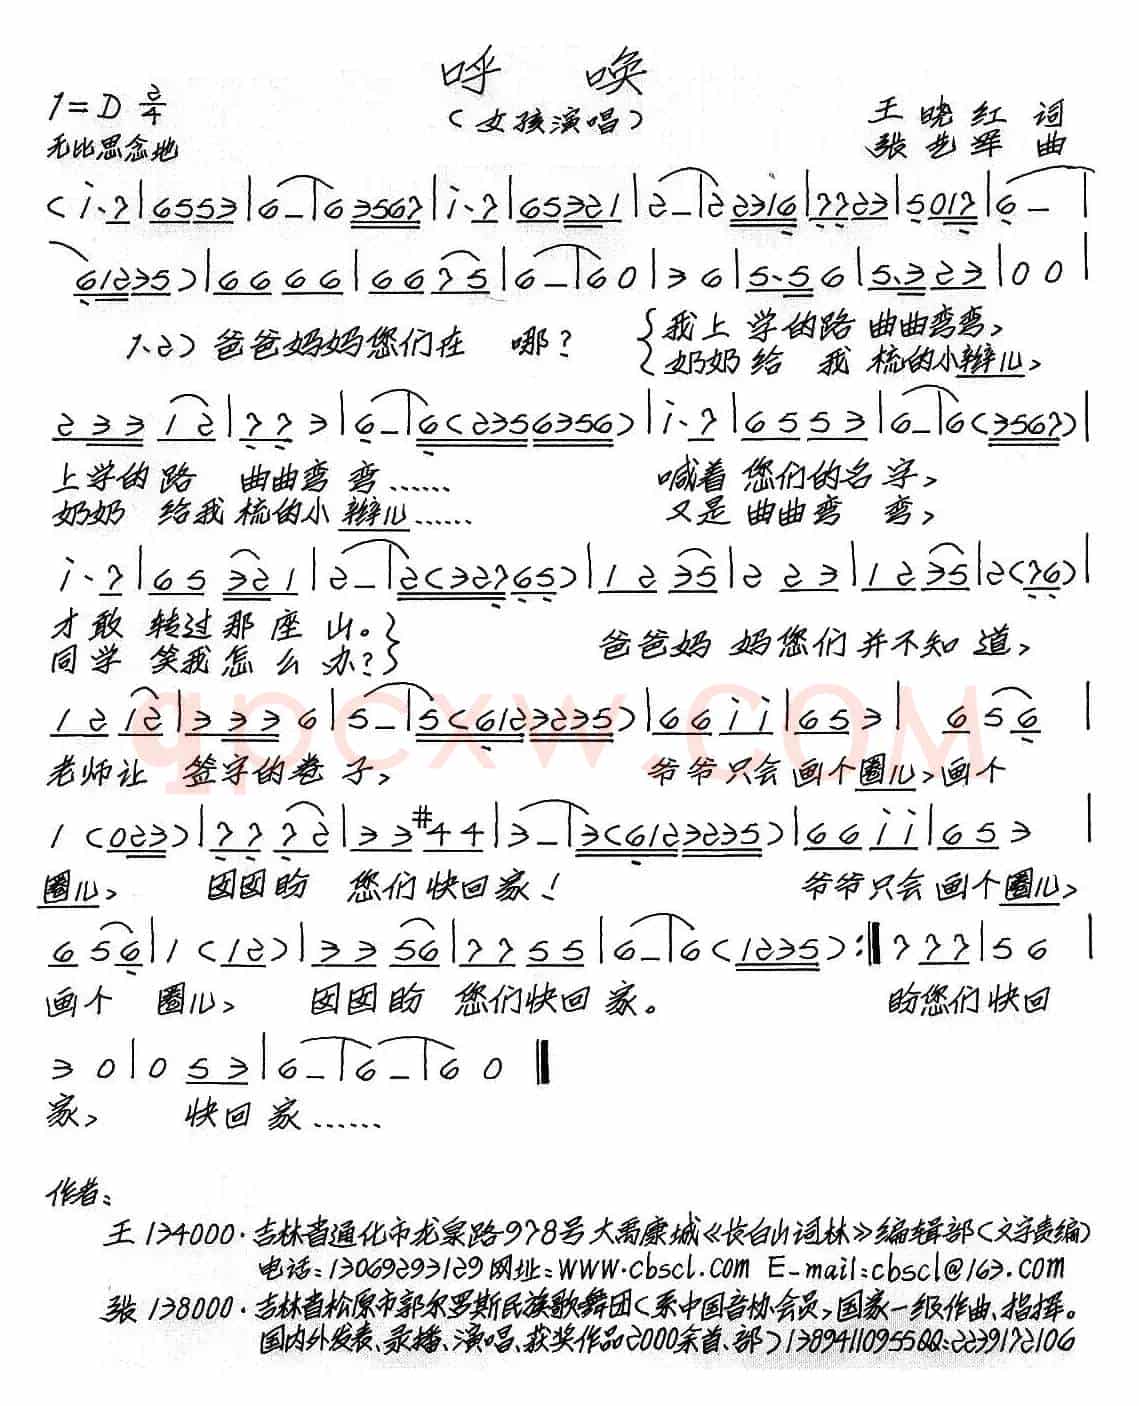 呼 唤
(女孩演唱)
1=D 2/4
无比思念地
王晓红 词
张艺军 曲
(i·7|6553|6-|63567|i·7|65321|2-|22316|7723|5017|6-|
61235)|6666|6675|6-|60|36|5·56|5·323|00|
1.2)爸爸妈妈您们在 哪?
{我上学的路 曲曲弯弯,
{奶奶给 我 梳的小辫儿,
23312|773|6-|6(2356356)|i·7|6553|6-|6(3567)|
上学的路 曲曲弯弯…… 喊着您们的名字,
奶奶 给我梳的小辫儿…… 又是曲曲弯 弯,
i·7|65321|2-|2(32765)|1235|223|1235|2(76)|
才敢 转过那座山。} 爸爸妈 妈您们并不知道,
同学 笑我怎么办?}
1212|3336|5-|5(6123235)|66ii|653|656|
老师让 签字的卷子, 爷爷只会画个圈儿,画个
1(023)|7772|33#44|3-|3(6123235)|66ii|653|
圈儿, 囡囡盼 您们快回家! 爷爷只会画个圈儿,
656|1(12)|3356|7755|6-|6(1235):‖777|56|
画个 圈儿, 囡囡盼 您们快回家。 盼您们快回
30|053|6-|6-|60‖
家, 快回家……
作者:
王 134000·吉林省通化市龙泉路978号大禹康城《长白山词林》编辑部(文字责编)
电话:13069293129网址:www.cbscl.com E-mail:cbscl@163.com
张 138000·吉林省松原市郭尔罗斯民族歌舞团(系中国音协会员,国家一级作曲、指挥。
国内外发表、录播、演唱、获奖作品2000余首、部)13894110955QQ:2239172106
qpcxw.COM